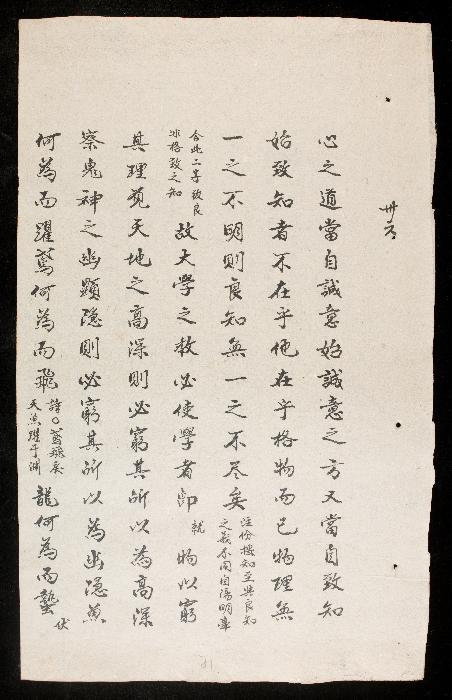 卅六
心之道當自誠意始誠意之方又當自致知
始致知者不在乎他在乎格物而已物理無
一之不明則良知無一之不尽矣 注份按知至與良知之義不同自陽明牽
合此二字致良非格致之知 故大学之教必使學者即 就 物以窮
其理覓天地之高深則必窮其所以為高深
察鬼神之幽顯隐則必窮其所以為幽隐魚
何為而躍鳶何為而飛 詩〇鳶飛戾天魚躍于淵 龍何為而蟄 伏